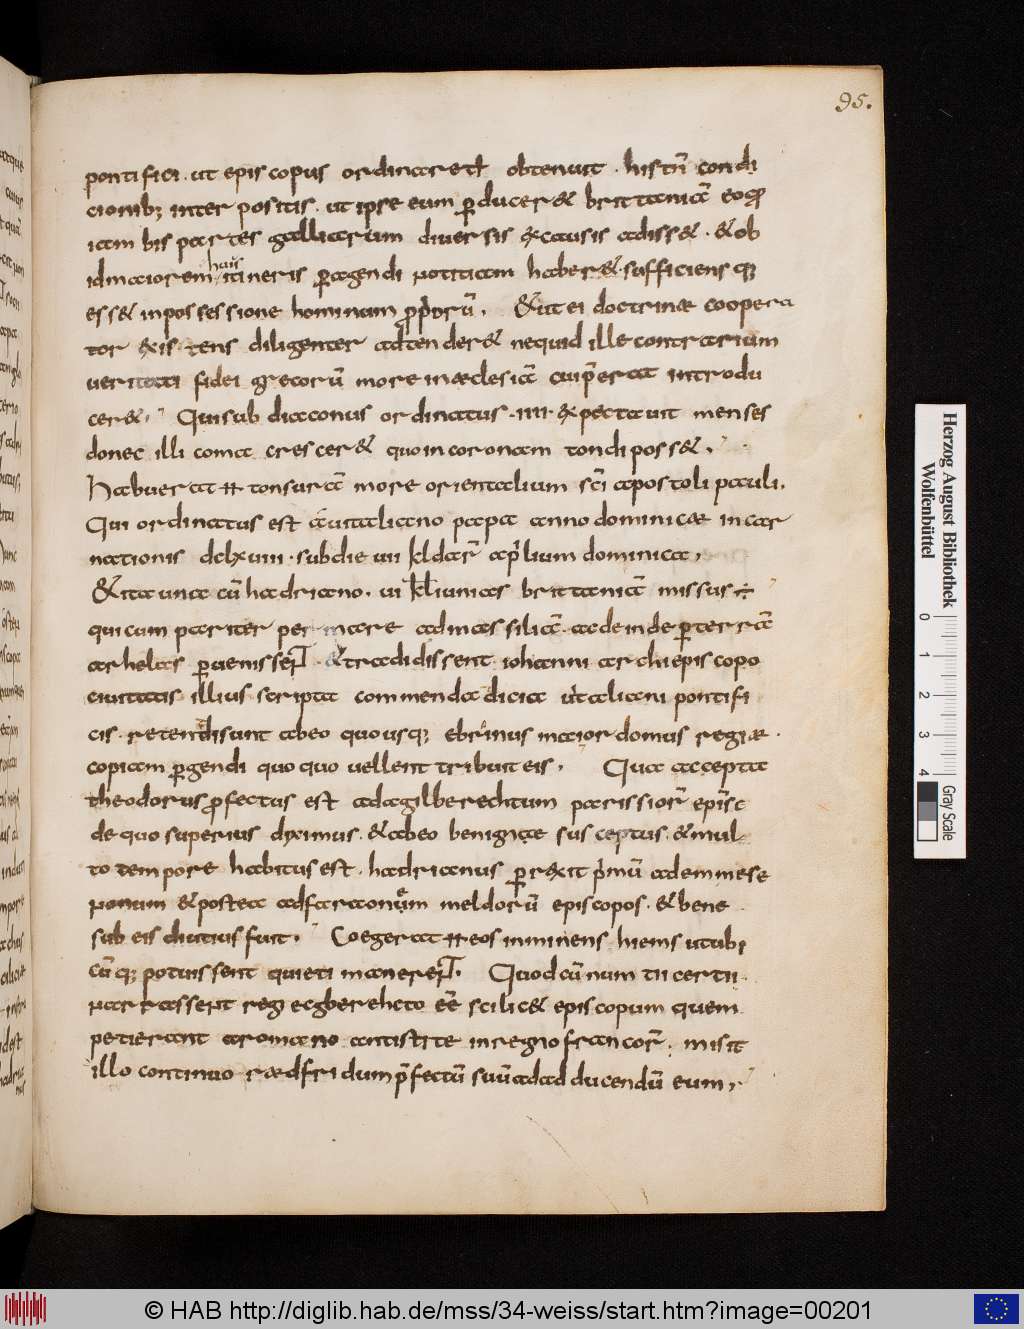 95.
pontifici. ut episcopus ordinaretur obtenuit. histñ condi
cionib; inter positis. ut ipse eum ꝑducer& brittaniā eoꝙ
iam bis partes galliarum diuersis excausis adiss&. & ob
idmaiorem huius itineris ꝑagendi notitiam haber&. sufficiensq;
ess& inpossessione hominum ꝓpˈorū. &ut ei doctrinae coopera
tor existens diligenter adtender& nequid ille contrarium
ueritati fidei grecorū more inaeclesiā cuip̄erat introdu
cer&. Quisubdiaconus ordinatus. IIII. expectauit menses
donec illi coma crescer& quo incoronam tondi poss&.
Habuerat H tonsurā more orientalium sc̄i apostoli pauli.
Qui ordinatus est áuitaliano papa anno dominicae incar
nationis dclxuiii. subdie uii kl dar̄ ap̄lium dominica,
&ita una cū hadriano. ui kl iunias brittaniā missus ÷
qui cum pariter per mare admassiliā. acdeinde ꝑterrā
arhelas ꝑuenissent. &tradidissent iohanni archiepiscopo
ciuitatis illius scripta commendadicia uitaliani pontifi
cis. retenti sunt abeo quousq; ebrinus maior domus regiae.
copiam ꝑgendi quo quo uellent tribuit eis. Qua accepta
theodorus ꝓfectus est adagilberechtum parissior̄ epīsc
de quo superius dyximus. &abeo benignae susceptus. &mul
to tempore habitus est. hadrianus ꝑrexit pˈmū ademmese
nonum &postea adfaraonum meldorū episcopos. &bene
sub eis diutius fuit. Coegerat H eos inminens hiems utubi
cūq; potuissent quieti manerent. Quodcū num tii certii
narrassent reg ecgberehcto eē scilic& episcopum quem
petierant aromano antistite inregno francor̄. misit
illo continuo raedfridum p̄fectū suū adadducendū eum,
Herzog August Bibliothek
Wolfenbüttel
0 1 2 3 4
Gray Scale
© HAB http://diglib.hab.de/mss/34-weiss/start.htm?image=00201